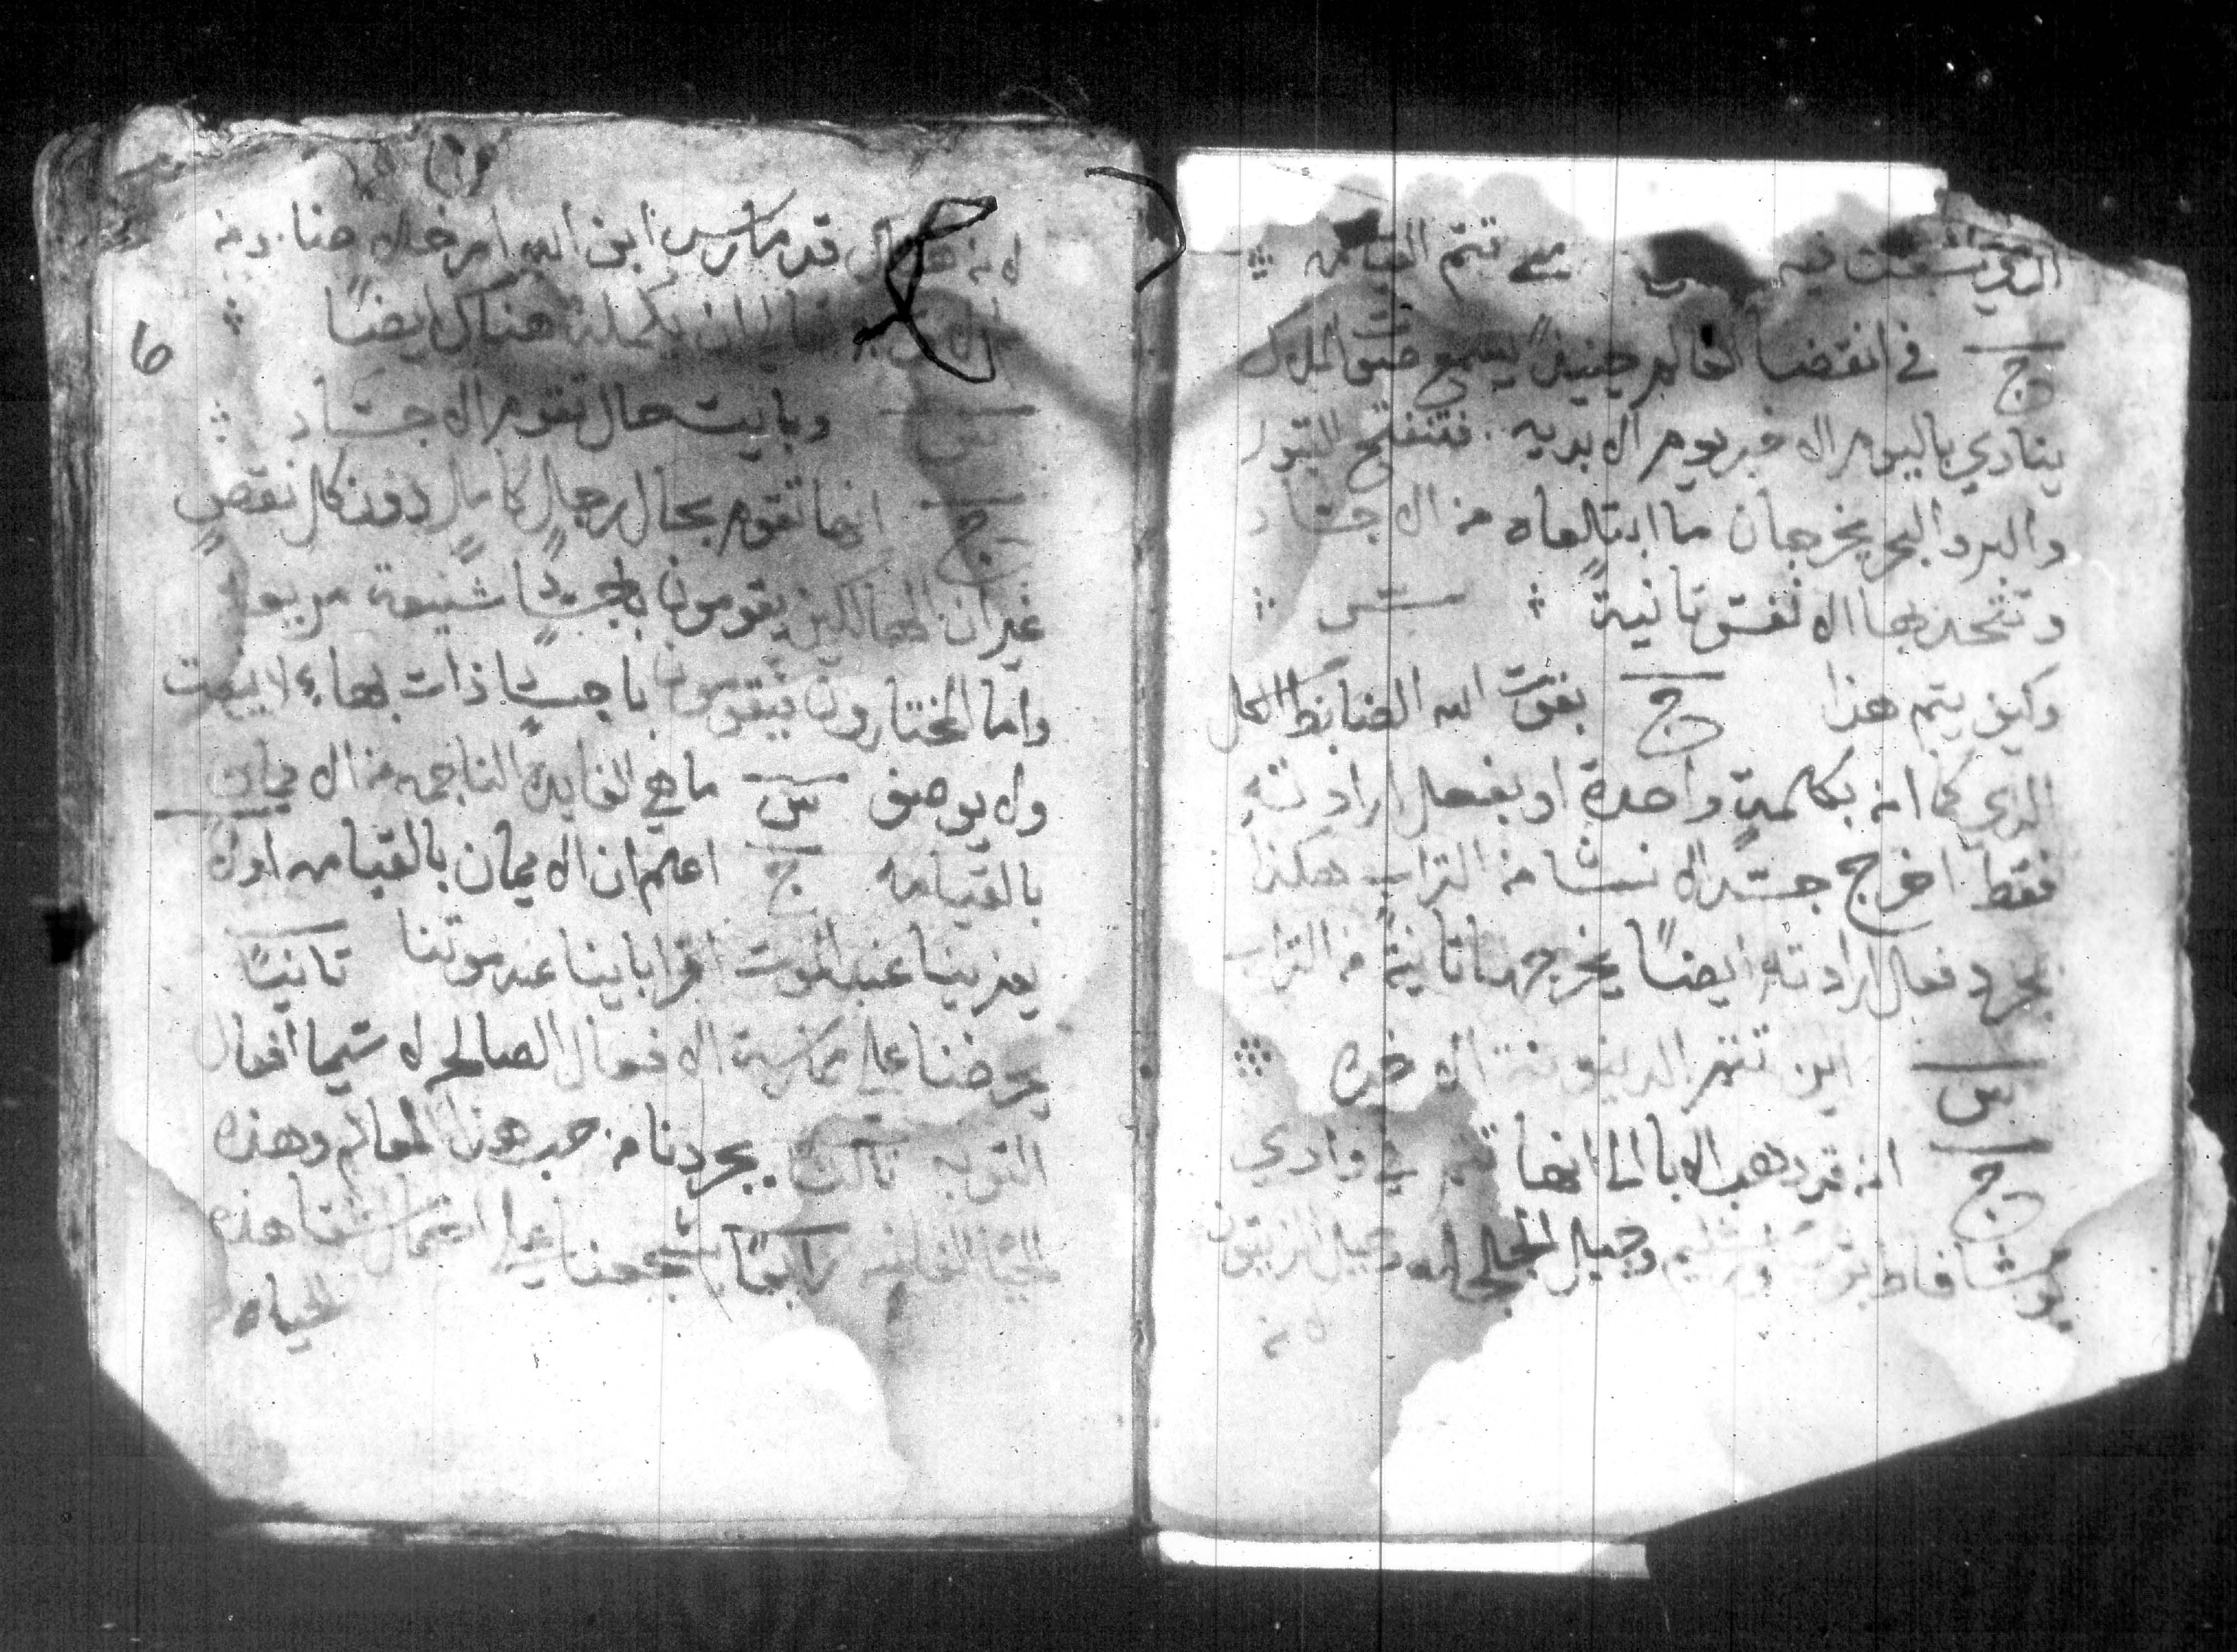 الذي سبقت فيه متي تتم القيامه
ج في انقضا العالم حينيذٍ يسمع صوت الملاك
ينادي باليوم الاخير يوم الابديه . فتنفتح القبور
والبر والبحر يخرجان ما ابتلعاه من الاجساد
وتتحد بها الانفس ثانيةً س
وكيف يتم هذا ج بقوت الله الضابط الكل
الذي كما انه بكلمةٍ واحدة او بفعل ارادته
فقط اخرج جسد الانسان من التراب هكذا
بمجرد فعال ارادته ايضًا يخرجها ثانيةً من التراب
س اين تتم الدينونة الاخره
ج انه قد ذهب الابا الي انها تتم في وادي
يوشافاط وجبل الجلجله وجبل الزيتون
لانه
لانه هناك قد مارس ابن الله امر خلاصنا ومن
ان يكمله هناك ايضًا
س وبايت حال تقوم الاجساد
ج انها تقوم بحال رجلٍ كاملٍ دون كل نقصٍ
غير ان الهالكين يقومون باجسادٍ شنيعة مريعه
واما المختارون فيقومون باجسادٍ ذات بهاء لا ينعت
ولا يوصف س ما هي الفايدة الناجمه من الايمان
بالقيامه ج اعلم ان الايمان بالقيامه اولا
يعزينا عند الموت اقرباينا عند موتنا ثانيًا
يحرضنا علي ممارسة الافعال الصالحه لا سيما افعال
التوبه ثالثًا يجردنا من حب هذا العالم وهذه
الحياة الفانيه رابعًا يشجعنا علي احتمال شقا هذه
الحياه
6